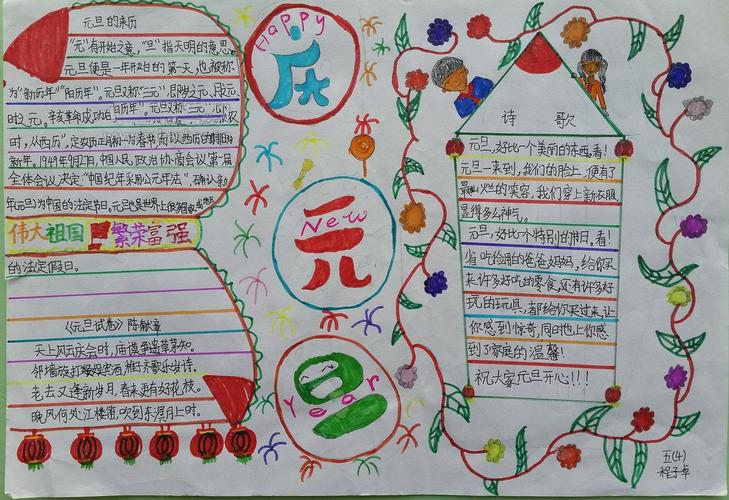 元旦的来历
"元"有开始之意,"旦"指天明的意思。
元旦便是一年开始的第一天,也被称
为"新历年""阳历年"。元旦又称"三元",即岁之元、月之元、
时之元。辛亥革命成功
时,从西历",定农历正月初一为春节,而以西历的
新年。1949年9月27日,中国人民政治协商会议第一届
全体会议决定"中国纪年采用公元年法",确认新
年(元旦)为中国的法定节日。元旦也是世界上很多国家或地区
伟大祖国 繁荣富强
的法定假日。
《元旦试卷》陈献章
天上风云庆会时,庙谟争遣草茅知。
邻墙旋打娱宾酒,稚子齐歌乐岁诗。
老去又逢新岁月,春来更有好花枝。
晚风何处江楼笛,吹到东溟月上时。
Happy
庆
New
元
Year
旦
诗 歌
元旦,好比一个美丽的东西,看!
元旦一来到,我们的脸上,便有了
最灿烂的笑容,我们穿上新衣服,
显得多么神气。
元旦,好比个特别的节日,看!
省吃俭用的爸爸妈妈,给你买
来许多好吃的零食,还有许多好
玩的玩具,都给你买过来,让
你感到惊奇,同时也让你感
到了家庭的温馨!
祝大家元旦开心!!!
五(4)
程子卓